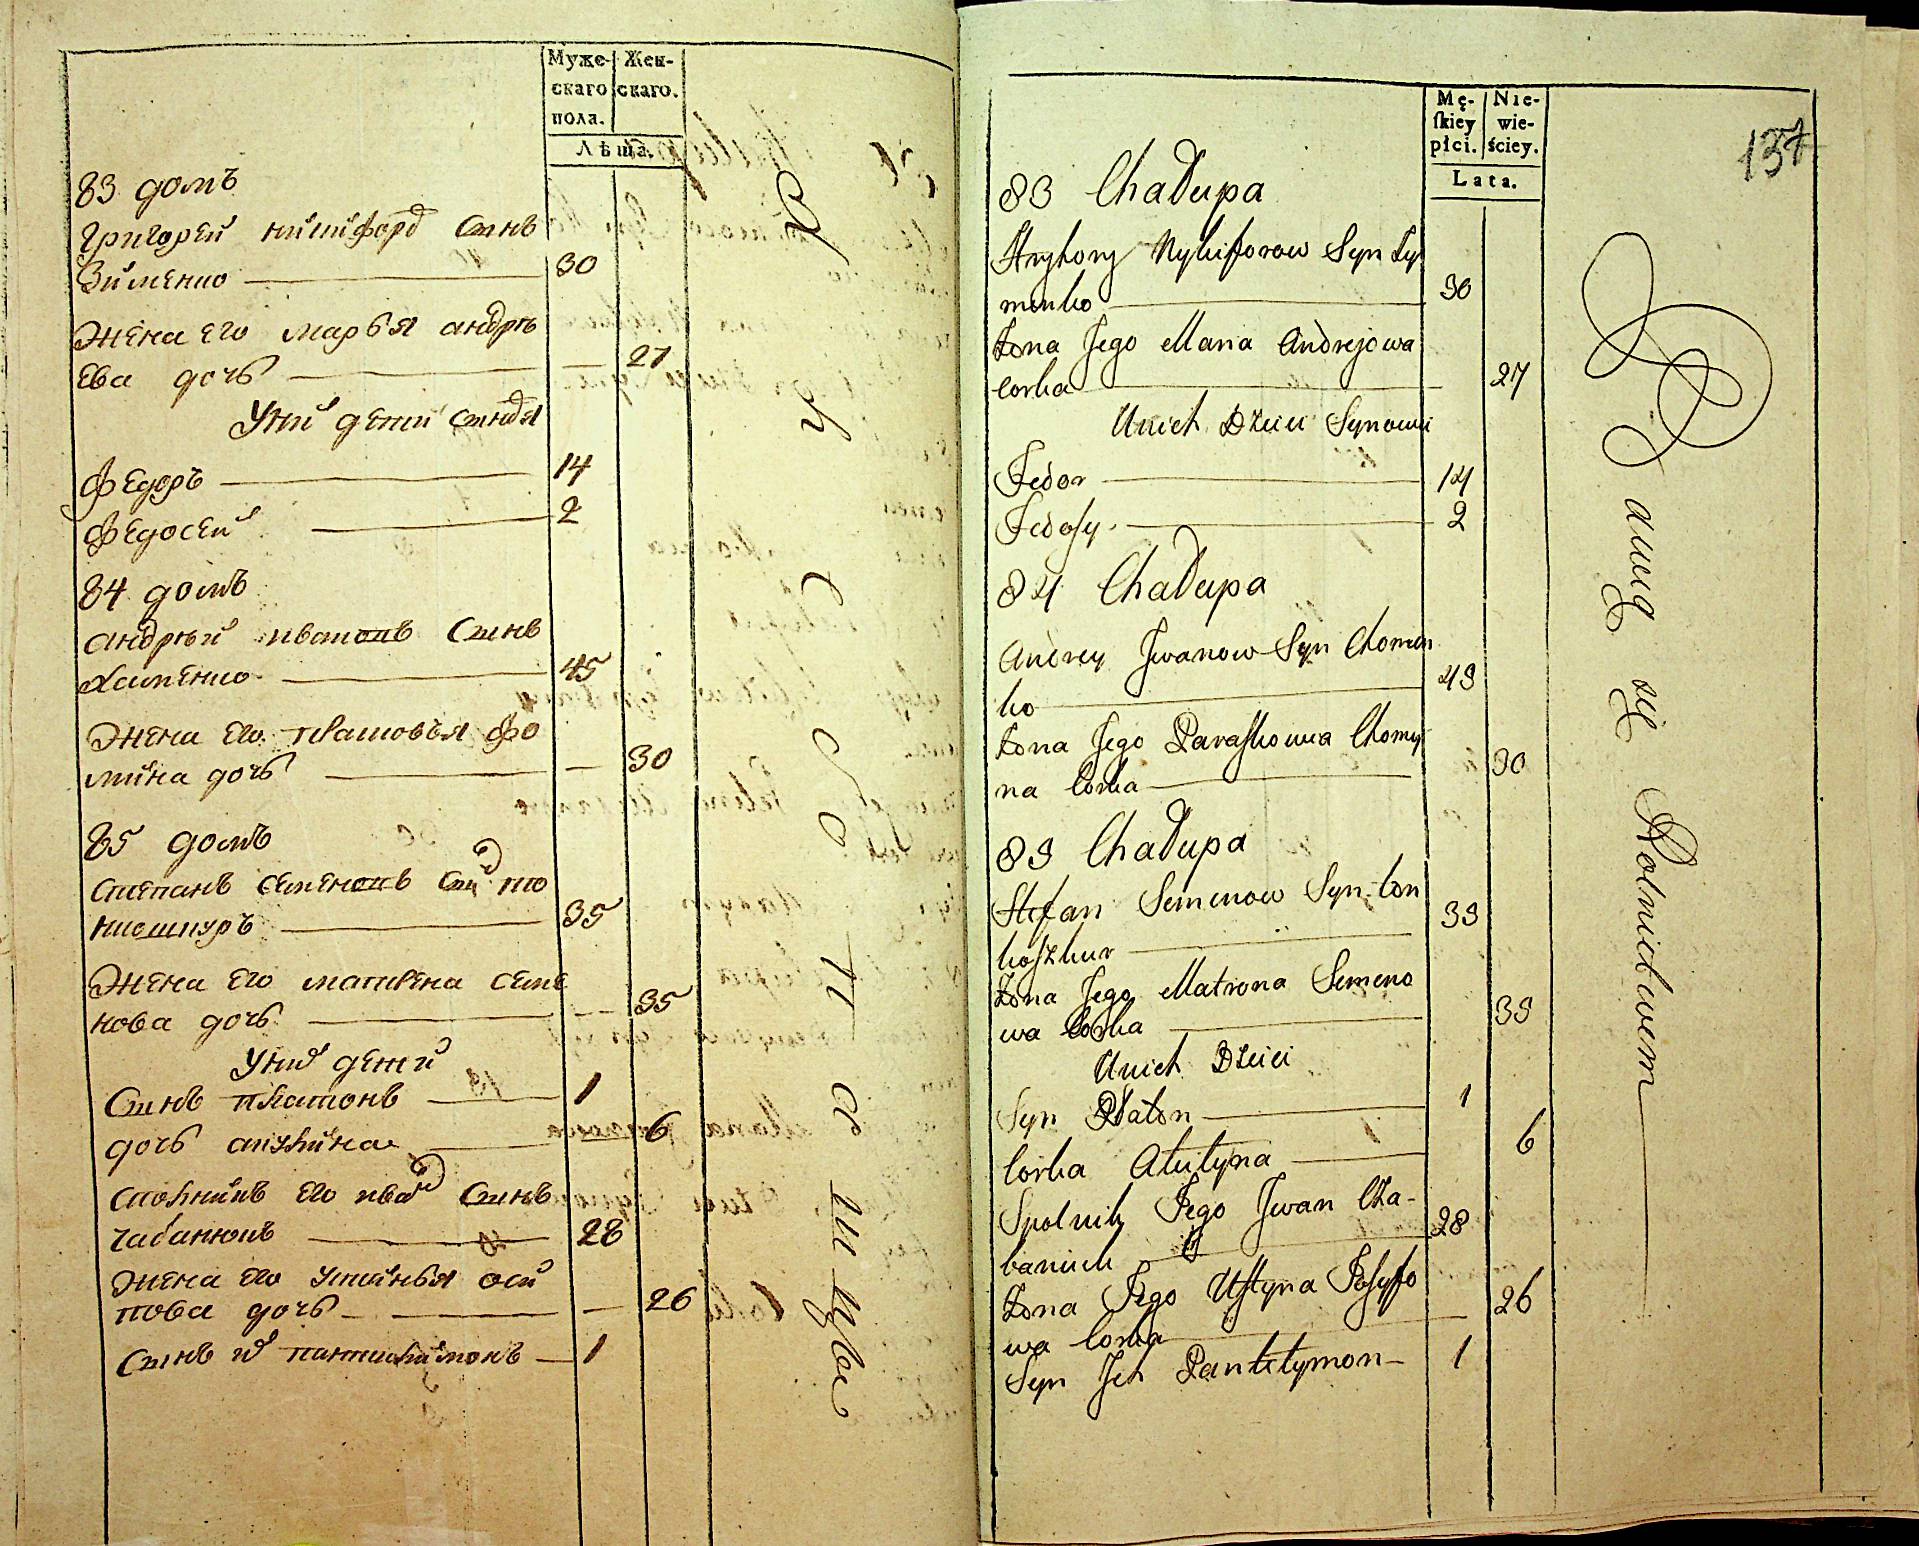 Муже-
скаго
пола.
Жен-
скаго.
Лѣта.
83 домъ
Григорей никифоровъ Сынъ
Зименко 30
Жена его марья андрѣ
ева дочь 27
У них дети Сыновья
Федоръ 14
Федосей 2
84 домъ
андрѣй ивановъ Сынъ
Хоменко 45
Жена его прасковья фо
мина дочь 30
85 домъ
степанъ семеновъ Сын
35
Жена его матрена семе
нова дочь 35
У них дети
Сынъ платонъ 1
дочь акулина 6
его иванъ Сынъ
чабанюкъ 28
Жена его устинья оси
пова дочь 26
Сынъ их пантилимонъ 1
Mę-
skiey
płci.
Nie-
wie-
ściey.
Lata.
137
83 Chałupa
Hryhory Nykiforow Syn Zy
menko 30
Żona Jego Maria Andrejowa
corka 27
U nich Dzieci Synowie
Fedor 14
Fedosy 2
84 Chałupa
Andrey Jwanow Syn Chomen
ko 45
Żona Jego Paraskowia Chomy
na Corka 30
85 Chałupa
Stefan Semenow Syn
35
Żona Jego Matrona Semeno
wa Corka 35
U nich Dzieci
Syn Płaton 1
Corka Akulyna 6
Spolnik Jego Jwan Cza-
baniuk 28
Żona Jego Ustyna Josyfo
wa Corka 26
Syn Jch Pantelymon 1
Bawią się Rolnictwem